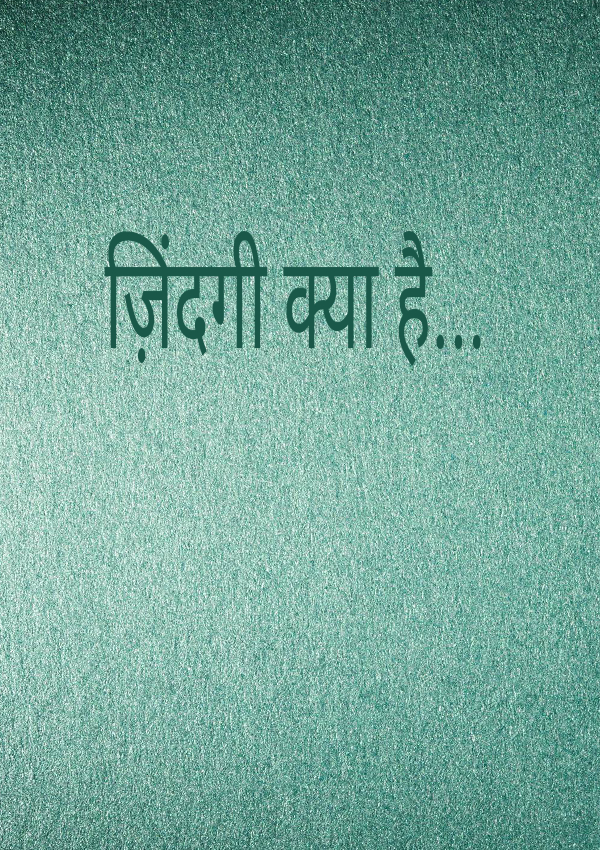 ज़िंदगी क्या है...